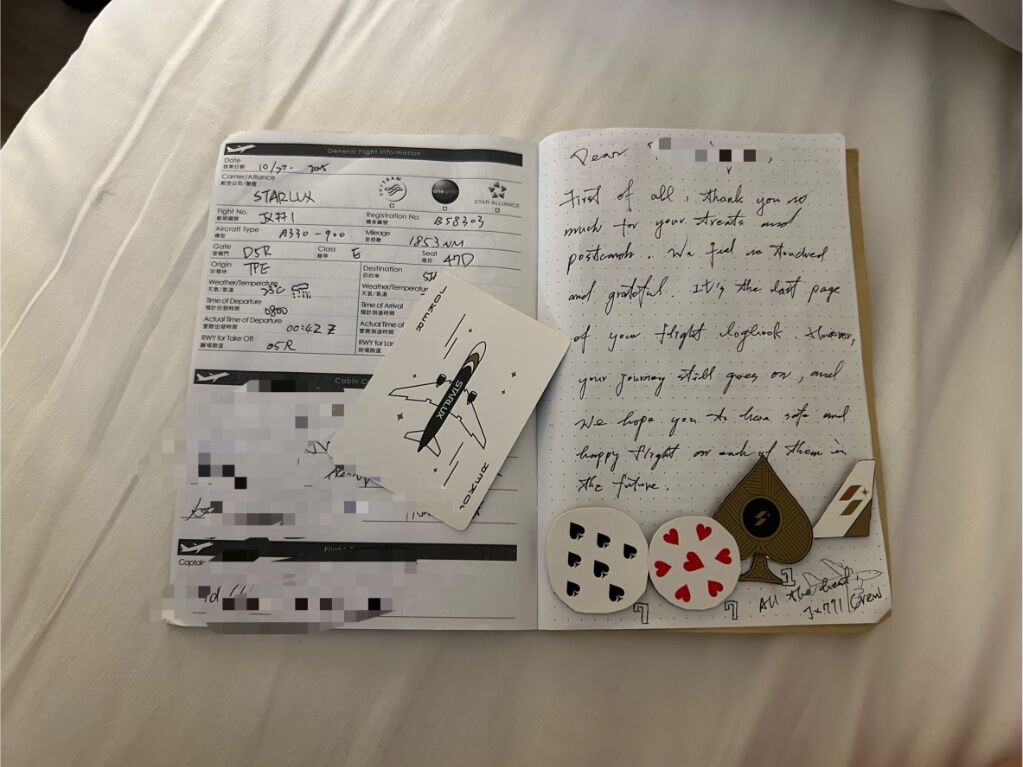 General Flight Information
Date 10/27. 2025
搭乘日期
Carrier/Alliance
航空公司/聯盟
STARLUX
SKYTEAM
one
STAR ALLIANCE
Flight No. JX771
航班編號
Registration No. B58303
機身編號
Aircraft Type A330-900
機型
Mileage 1853 NM
里程數
Gate D5R
登機門
Class E
艙等
Seat 47D
座位
Origin TPE
出發地
Destination
目的地
Weather/Temperature 23C
天氣/氣溫
Weather/Temperature
天氣/氣溫
Time of Departure 0800
預計出發時間
Time of Arrival
預計到達時間
Actual Time of Departure 00:42 Z
實際出發時間
Actual Time of
實際到達時間
RWY for Take Off 05R
離場跑道
RWY for Lan
到場跑道
Cabin C
Captain
JOKER
STARLUX
JOKER
Dear
First of all, thank you so
much for your treats and
postcards. We feel so touched
and grateful. It's the last page
of your flight logbook. However,
your journey still goes on, and
we hope you to have safe and
happy flight on each of them in
the future.
7
7
1
All the best,
JX771 Crew